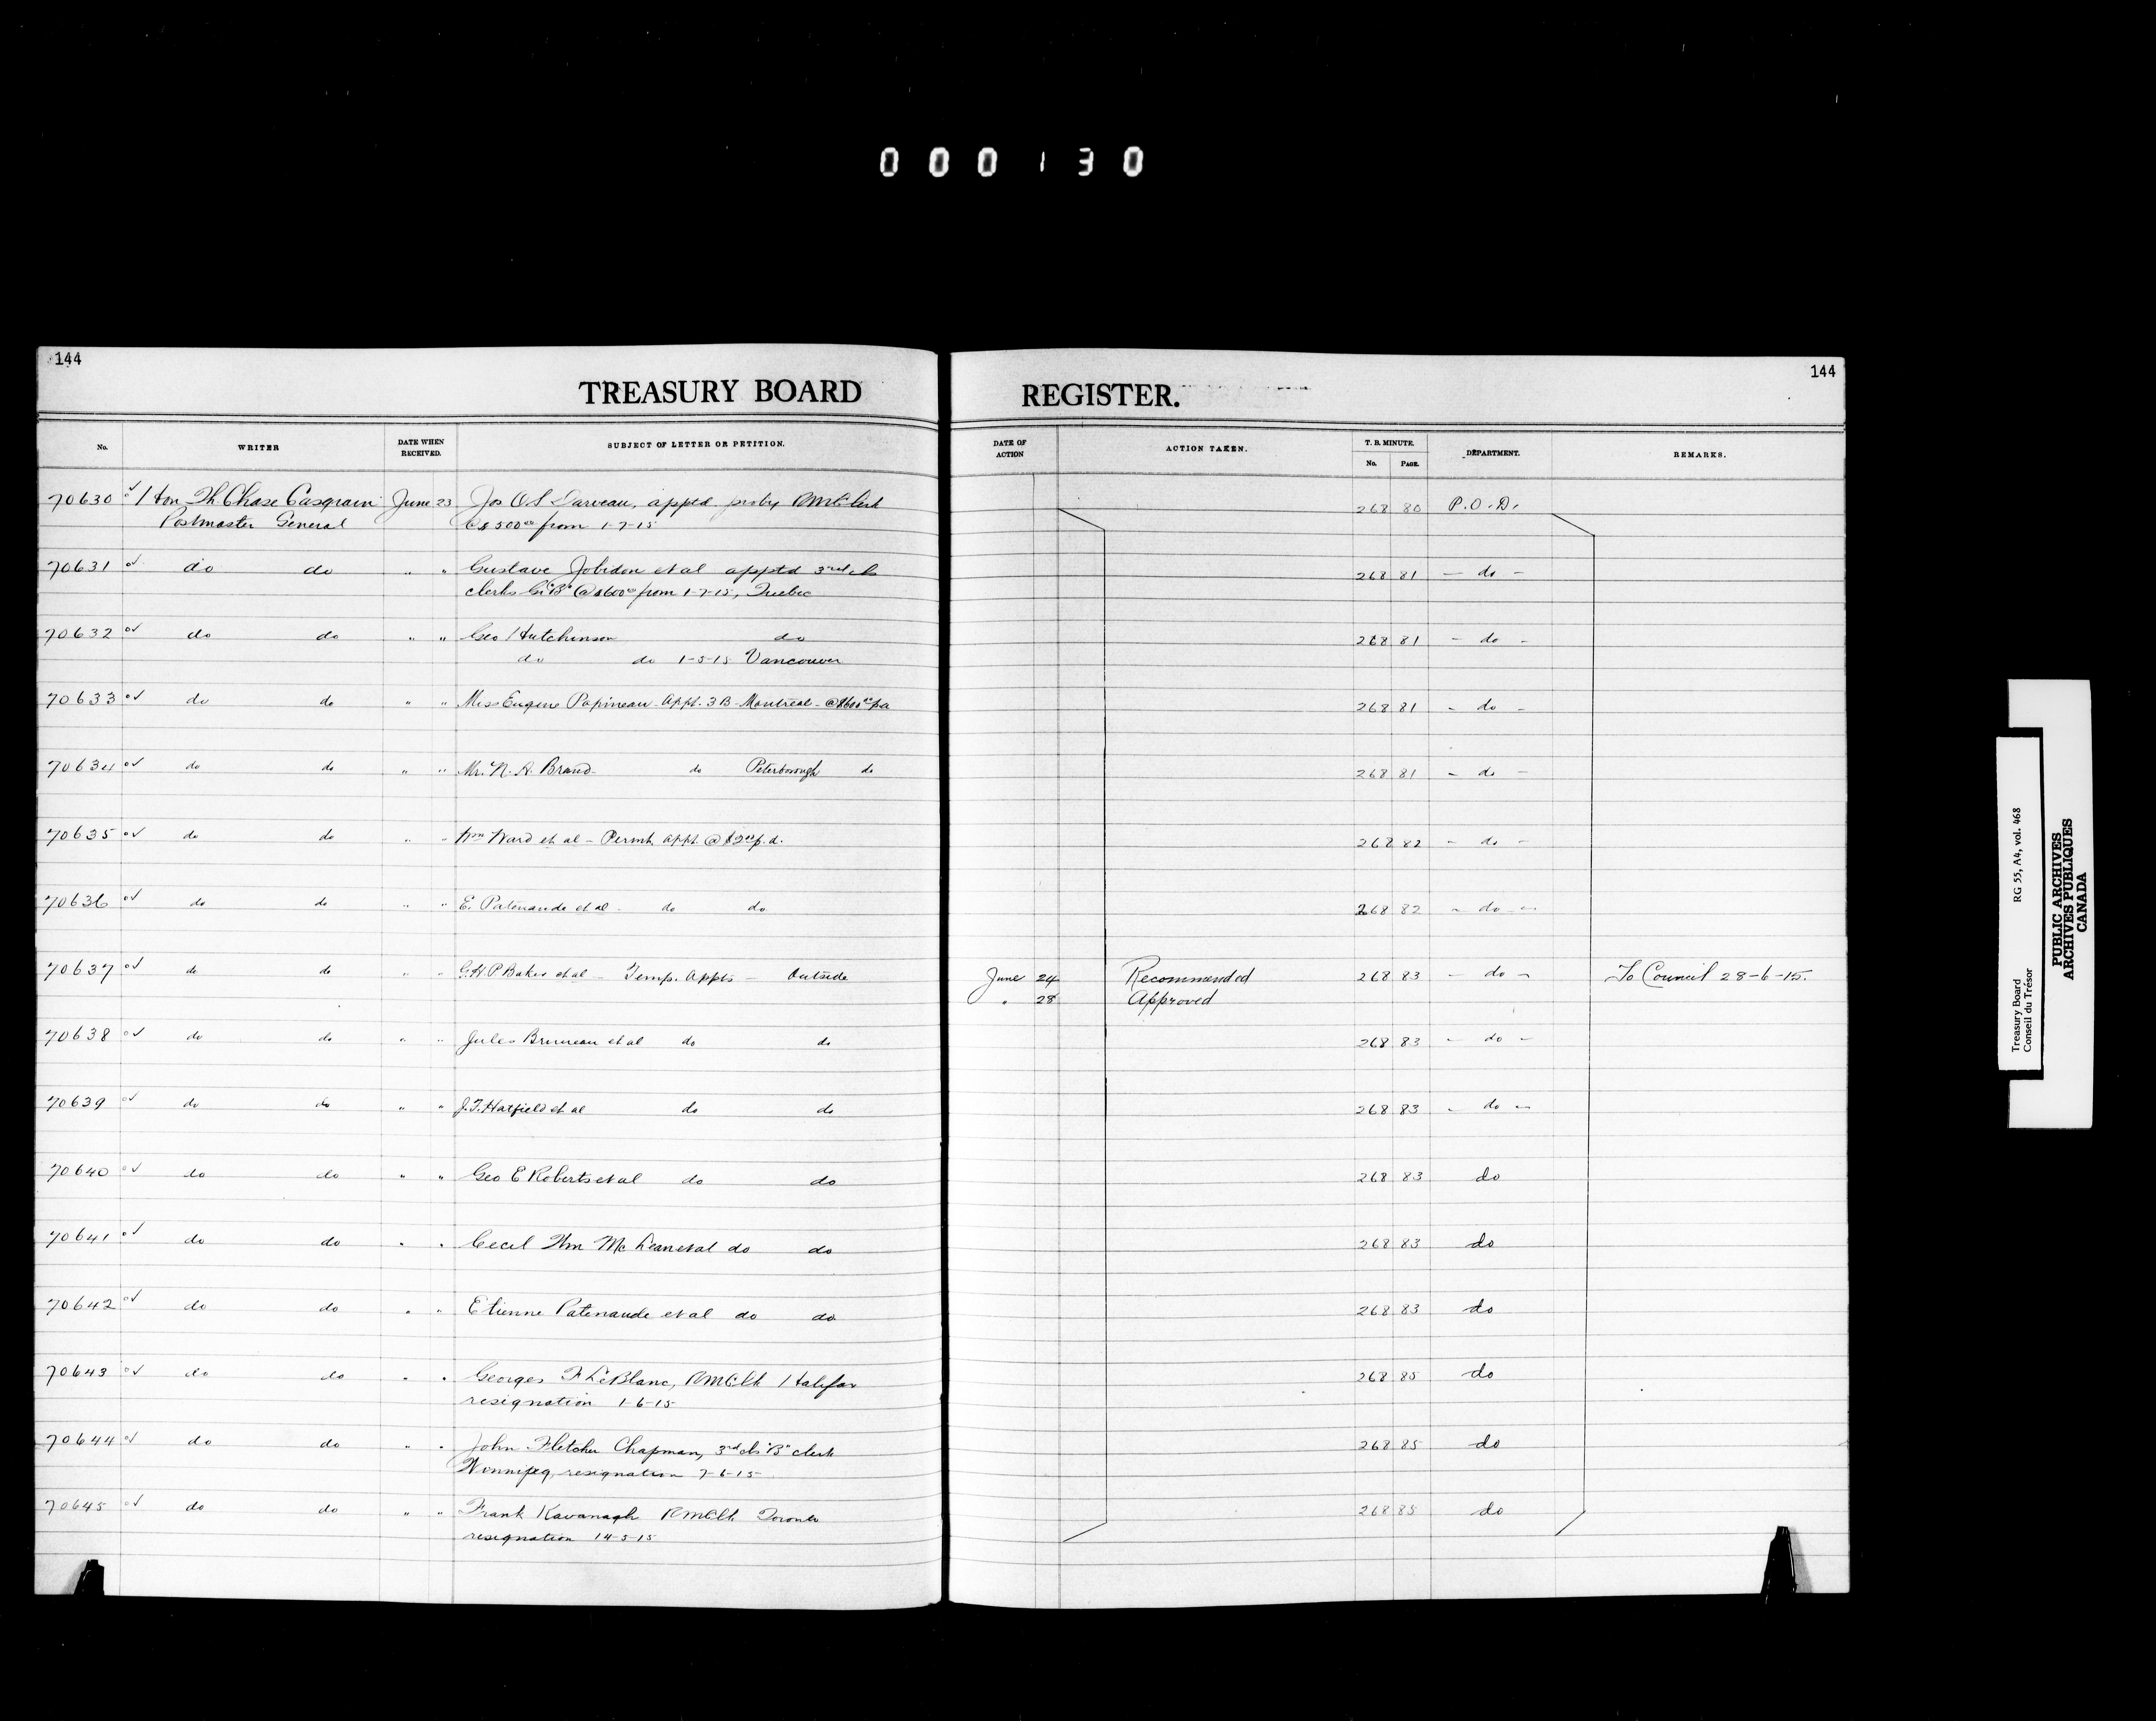 000130
144
TREASURY BOARD REGISTER.
144
No. WRITER DATE WHEN RECEIVED. SUBJECT OF LETTER OR PETITION. DATE OF ACTION ACTION TAKEN. T. B. MINUTE. No. PAGE. DEPARTMENT. REMARKS.
70630 Hon Th. Chase Casgrain June 23 Jos O S Darveau, apptd proby RMC Clerk 268 80 P.O.D.
Postmaster General @ $500 00 from 1-7-15
70631 do do " " Gustave Jobidon et al apptd 3rd cls 268 81 - do -
clerks Gr "B" @ $600 00 from 1-7-15, Quebec
70632 do do " " Geo Hutchinson do 268 81 - do -
do do 1-5-15 Vancouver
70633 do do " " Miss Eugene Papineau - Appt. 3 B - Montreal - @ $600 00 pa 268 81 - do -
70634 do do " " Mr. N. A. Brand - do Peterborough do 268 81 - do -
70635 do do " " Wm Ward et al - Permt. appt. @ $2 00 p.d. 268 82 - do -
70636 do do " " E. Patenaude et al - do do 268 82 - do -
70637 do do " " G.H.P Baker et al - Temp. Appts - Outside June 24 Recommended 268 83 - do - To Council 28-6-15.
" 28 Approved
70638 do do " " Jules Bruneau et al do do 268 83 - do -
70639 do do " " J.T. Hatfield et al do do 268 83 - do -
70640 do do " " Geo E Roberts et al do do 268 83 do
70641 do do " " Cecil Wm McLean et al do do 268 83 do
70642 do do " " Etienne Patenaude et al do do 268 83 do
70643 do do " " Georges F LeBlanc, RMC Clk Halifax 268 85 do
resignation 1-6-15
70644 do do " " John Fletcher Chapman, 3rd cls "B" clerk 268 85 do
Winnipeg, resignation 7-6-15
70645 do do " " Frank Kavanagh RMC Clk Toronto 268 85 do
resignation 14-5-15
Treasury Board RG 55, A4, vol. 468
Conseil du Trésor
PUBLIC ARCHIVES
ARCHIVES PUBLIQUES
CANADA